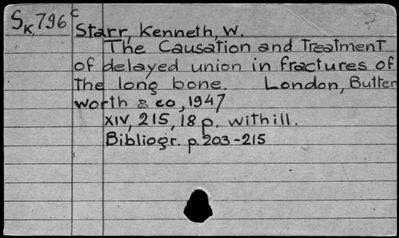 SK, 796 c
Starr, Kenneth, W.
The Causation and Treatment
of delayed union in fractures of
the long bone. London, Butter
worth & co, 1947
XIV, 215, 18 p. withill.
Bibliogr. p. 203-215